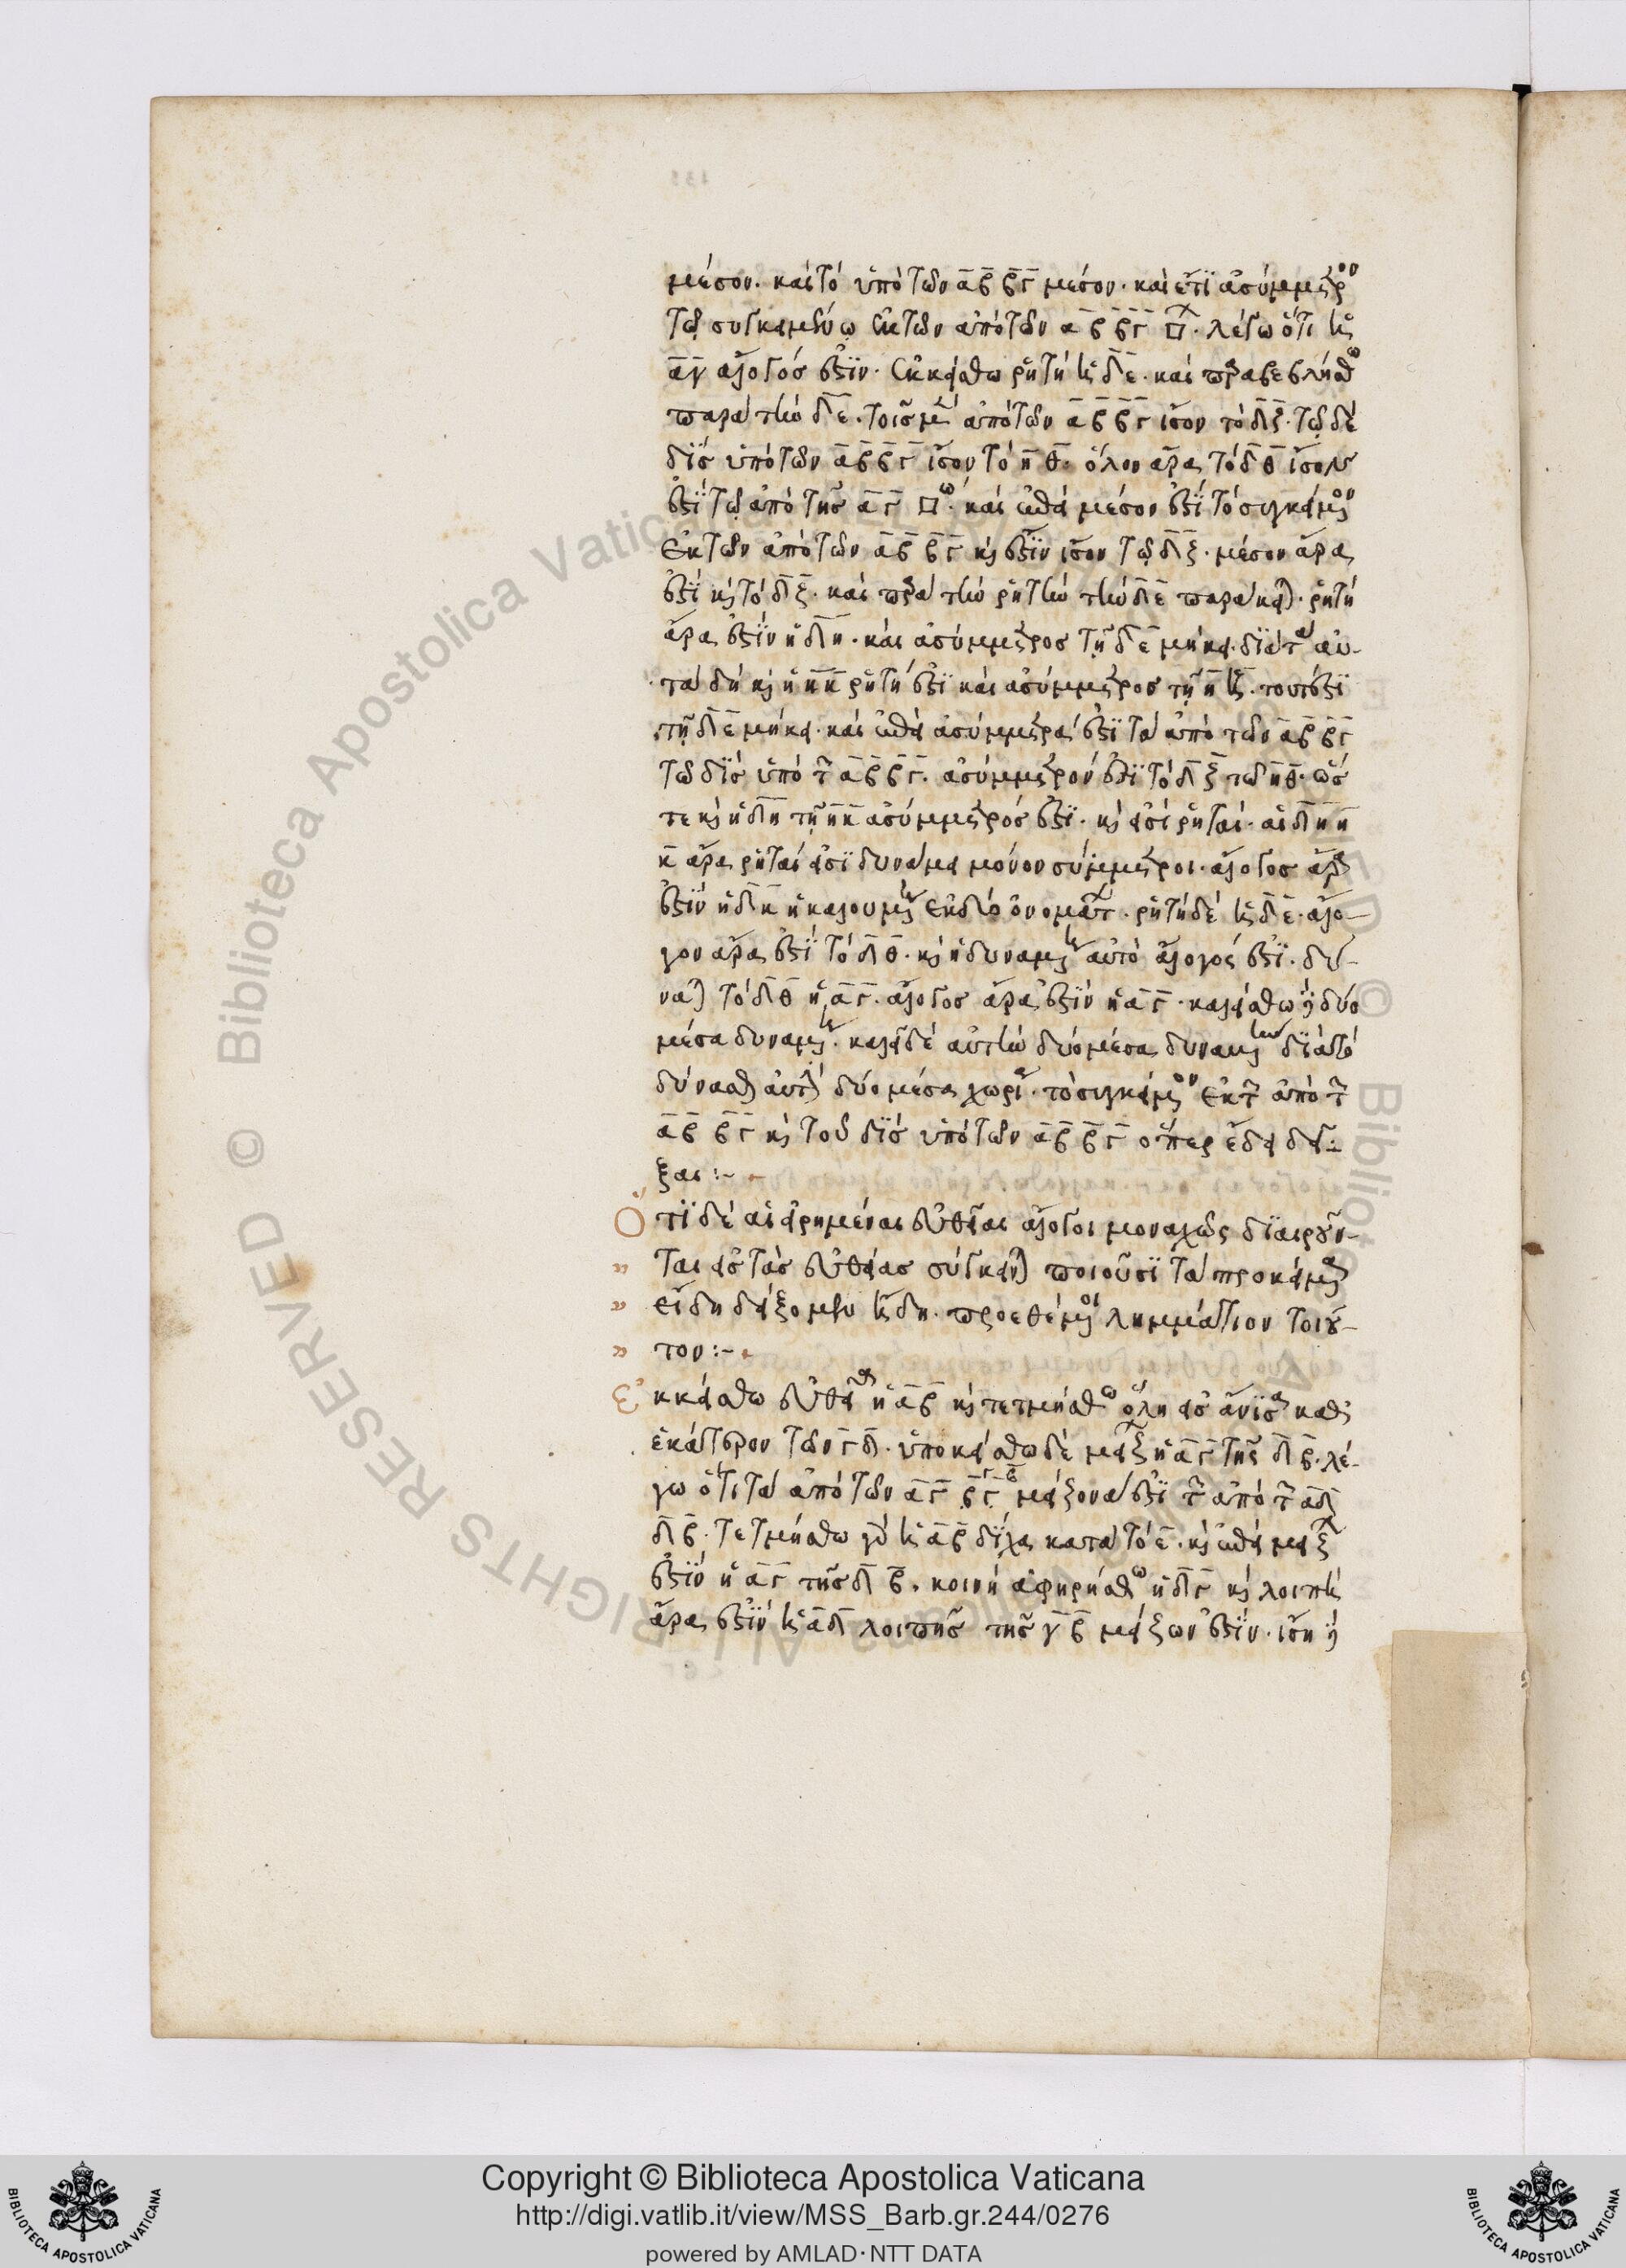 μέσον. καὶ τὸ ὑπὸ τῶν ΑΒ ΒΓ μέσον. καὶ ἔτι ἀσύμμετρον
τῷ συγκειμένῳ ἐκ τῶν ἀπὸ τῶν ΑΒ ΒΓ □. λέγω ὅτι ἡ
ΑΓ ἄλογός ἐστιν. ἐκκείσθω ῥητὴ ἡ ΔΕ. καὶ παραβεβλήσθω
παρὰ τὴν ΔΕ. τοῖς μὲν ἀπὸ τῶν ΑΒ ΒΓ ἴσον τὸ ΔΖ. τῷ δὲ
δὶς ὑπὸ τῶν ΑΒ ΒΓ ἴσον τὸ ΗΘ. ὅλον ἄρα τὸ ΔΘ ἴσον
ἐστὶ τῷ ἀπὸ τῆς ΑΓ □ω. καὶ ἐπεὶ μέσον ἐστὶ τὸ συγκείμενον
ἐκ τῶν ἀπὸ τῶν ΑΒ ΒΓ καί ἐστιν ἴσον τῷ ΔΖ. μέσον ἄρα
ἐστὶ καὶ τὸ ΔΖ. καὶ παρὰ τὴν ῥητὴν τὴν ΔΕ παράκειται. ῥητὴ
ἄρα ἐστὶν ἡ ΔΗ. καὶ ἀσύμμετρος τῇ ΔΕ μήκει. διὰ τὰ αὐ-
τὰ δὴ καὶ ἡ ΗΚ ῥητή ἐστι καὶ ἀσύμμετρος τῇ ΗΖ. τουτέστι
τῇ ΔΕ μήκει. καὶ ἐπεὶ ἀσύμμετρά ἐστι τὰ ἀπὸ τῶν ΑΒ ΒΓ
τῷ δὶς ὑπὸ τῶν ΑΒ ΒΓ. ἀσύμμετρόν ἐστι τὸ ΔΖ τῷ ΗΘ. ὥσ
τε καὶ ἡ ΔΗ τῇ ΗΚ ἀσύμμετρός ἐστι. καὶ εἰσὶ ῥηταί. αἱ ΔΗ Η
Κ ἄρα ῥηταί εἰσι δυνάμει μόνον σύμμετροι. ἄλογος ἄρα
ἐστὶν ἡ ΔΚ ἡ καλουμένη ἐκ δύο ὀνομάτων. ῥητὴ δὲ ἡ ΔΕ. ἄλο-
γον ἄρα ἐστὶ τὸ ΔΘ. καὶ ἡ δυναμένη αὐτὸ ἄλογός ἐστι. δύ-
ναται τὸ ΔΘ ἡ ΑΓ. ἄλογος ἄρα ἐστὶν ἡ ΑΓ. καλείσθω ἡ δύο
μέσα δυναμένη. καλεῖ δὲ αὐτὴν δύο μέσα δυναμένην διὰ τὸ
δύνασθαι αὐτὴν δύο μέσα χωρία. τὸ συγκείμενον ἐκ τῶν ἀπὸ τῶν
ΑΒ ΒΓ καὶ τοῦ δὶς ὑπὸ τῶν ΑΒ ΒΓ ὅπερ ἔδει δεῖ
ξαι :~
Ὅτι δὲ αἱ εἰρημέναι εὐθεῖαι ἄλογοι μοναχῶς διαιροῦν-
ται εἰς τὰς εὐθείας σύγκεινται ποιοῦσι τὰ προκείμενα
εἴδη δείξομεν ἤδη. προεθέμενοι λημμάτιον τοιοῦ-
τον :~
Ἐκκείσθω εὐθεῖα ἡ ΑΒ καὶ τετμήσθω ὅλη εἰς ἄνισα καθ'
ἑκάτερον τῶν Γ Δ. ὑποκείσθω δὲ μείζων ἡ ΑΓ τῆς ΔΒ. λέ-
γω ὅτι τὰ ἀπὸ τῶν ΑΓ ΒΓ μείζονά ἐστι τῶν ἀπὸ τῶν ΑΔ
ΔΒ. τετμήσθω γὰρ ἡ ΑΒ δίχα κατὰ τὸ Ε. καὶ ἐπεὶ μείζων
ἐστὶν ἡ ΑΓ τῆς ΔΒ. κοινὴ ἀφῃρήσθω ἡ ΔΓ καὶ λοιπὴ
ἄρα ἐστὶν ἡ ΑΔ λοιπῆς τῆς ΓΒ μείζων ἐστίν. ἴση
Copyright © Biblioteca Apostolica Vaticana
http://digi.vatlib.it/view/MSS_Barb.gr.244/0276
powered by AMLAD · NTT DATA
BIBLIOTECA APOSTOLICA VATICANA
BIBLIOTECA APOSTOLICA VATICANA